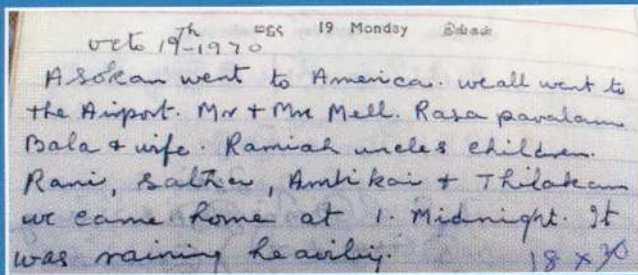 සඳුදා 19 Monday திங்கள்
octo 19th-1970
Asokan went to America. we all went to
the Airport. Mr + Mrs Mell. Rasa pavalam
Bala & wife. Ramiah uncles children.
Rani, Salthia, Ambikai + Thilakam
we came home at 1. Midnight. It
was raining heavily.
18 x 70